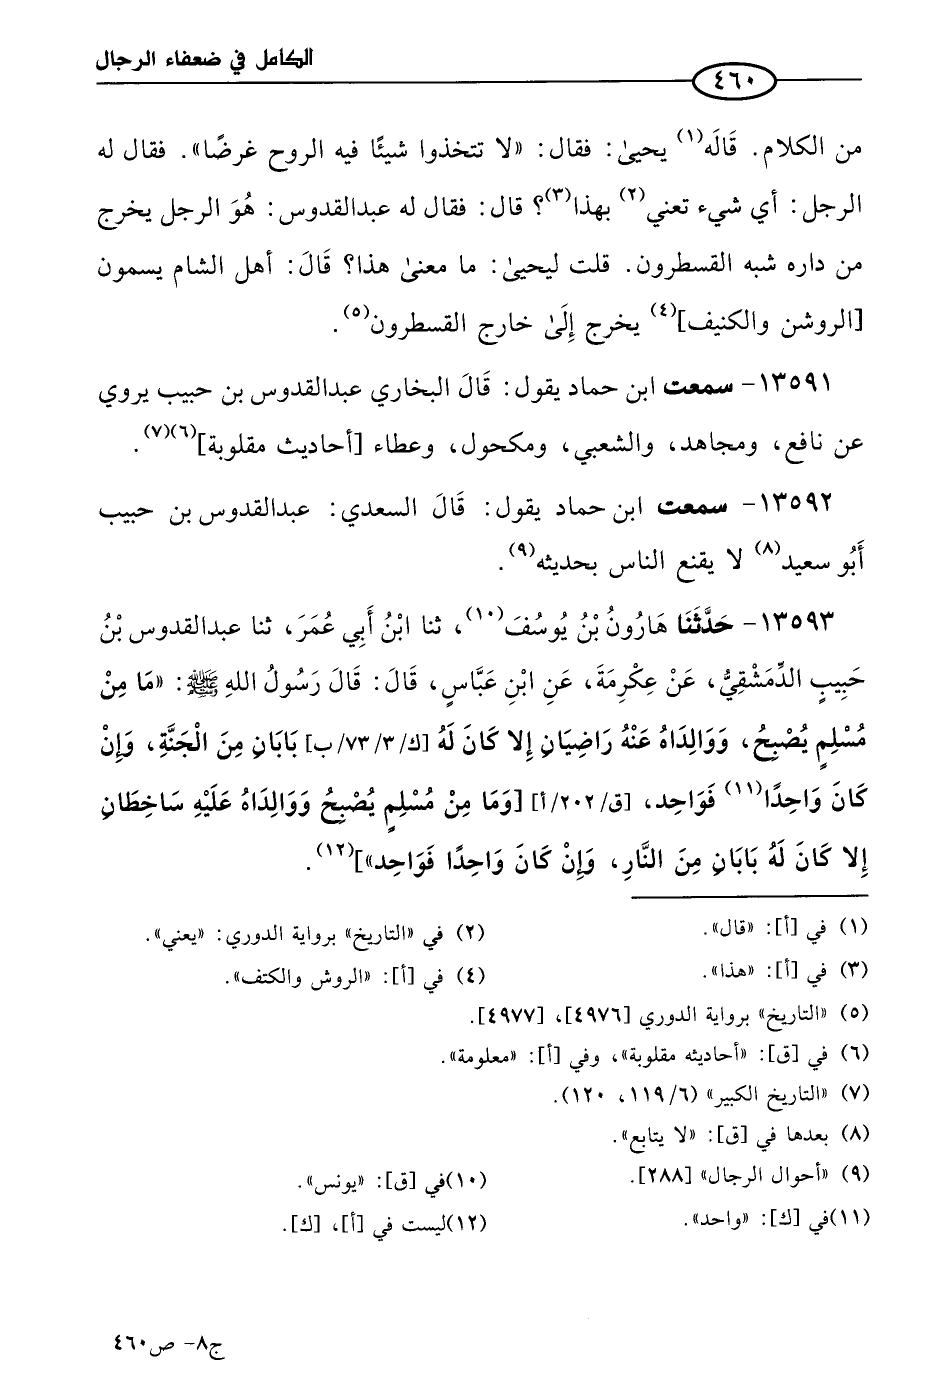 الكامل في ضعفاء الرجال
٤٦٠
من الكلام. قَالَه(١) يحيىٰ: فقال: «لا تتخذوا شيئًا فيه الروح غرضًا». فقال له
الرجل: أي شيء تعني(٢) بهذا(٣)؟ قال: فقال له عبدالقدوس: هُوَ الرجل يخرج
من داره شبه القسطرون. قلت ليحيىٰ: ما معنىٰ هذا؟ قَالَ: أهل الشام يسمون
[الروشن والكنيف](٤) يخرج إِلَىٰ خارج القسطرون(٥).
١٣٥٩١- سمعت ابن حماد يقول: قَالَ البخاري عبدالقدوس بن حبيب يروي
عن نافع، ومجاهد، والشعبي، ومكحول، وعطاء [أحاديث مقلوبة](٦)(٧).
١٣٥٩٢- سمعت ابن حماد يقول: قَالَ السعدي: عبدالقدوس بن حبيب
أَبُو سعيد(٨) لا يقنع الناس بحديثه(٩).
١٣٥٩٣- حَدَّثَنَا هَارُونُ بْنُ يُوسُفَ(١٠)، ثنا ابْنُ أَبِي عُمَرَ، ثنا عبدالقدوس بْنُ
حَبِيبٍ الدِّمَشْقِيُّ، عَنْ عِكْرِمَةَ، عَنِ ابْنِ عَبَّاسٍ، قَالَ: قَالَ رَسُولُ اللهِ ﷺ: «مَا مِنْ
مُسْلِمٍ يُصْبِحُ، وَوَالِدَاهُ عَنْهُ رَاضِيَانِ إِلا كَانَ لَهُ [ك/٧٣/٣/ب] بَابَانِ مِنَ الْجَنَّةِ، وَإِنْ
كَانَ وَاحِدًا(١١) فَوَاحِد، [ق/٢٠٢/أ] [وَمَا مِنْ مُسْلِمٍ يُصْبِحُ وَوَالِدَاهُ عَلَيْهِ سَاخِطَانِ
إِلا كَانَ لَهُ بَابَانِ مِنَ النَّارِ، وَإِنْ كَانَ وَاحِدًا فَوَاحِد»](١٢).
(١) في [أ]: «قال».
(٢) في «التاريخ» برواية الدوري: «يعني».
(٣) في [أ]: «هذا».
(٤) في [أ]: «الروش والكتف».
(٥) «التاريخ» برواية الدوري [٤٩٧٦]، [٤٩٧٧].
(٦) في [ق]: «أحاديثه مقلوبة»، وفي [أ]: «معلومة».
(٧) «التاريخ الكبير» (٦/ ١١٩، ١٢٠).
(٨) بعدها في [ق]: «لا يتابع».
(٩) «أحوال الرجال» [٢٨٨].
(١٠)في [ق]: «يونس».
(١١)في [ك]: «واحد».
(١٢)ليست في [أ]، [ك].
ج٨- ص٤٦٠